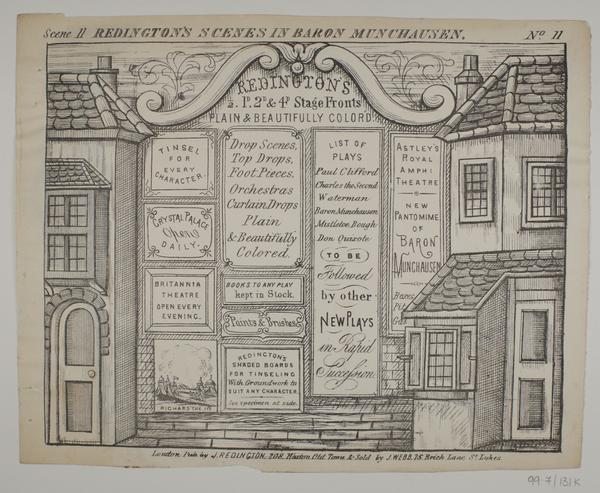 Scene 11 REDINGTON'S SCENES IN BARON MUNCHAUSEN. No 11
REDINGTON'S
½. 1D. 2D & 4D Stage Fronts
PLAIN & BEAUTIFULLY COLORD.
TINSEL
FOR
EVERY
CHARACTER.
CRYSTAL PALACE
Open
DAILY.
BRITANNIA
THEATRE
OPEN EVERY
EVENING.
RICHARD THE 1ST
Drop Scenes,
Top Drops,
Foot Pieces,
Orchestras
Curtain Drops
Plain
& Beautifully
Colored.
BOOKS TO ANY PLAY
kept in Stock.
Paints & Brushes
REDINGTON'S
SHADED BOARDS
FOR TINSELING
With Groundwork to
SUIT ANY CHARACTER.
See specimen at side.
LIST OF
PLAYS
Paul Clifford
Charles the Second
Waterman
Baron Munchausen
Mistletoe Bough
Don Quixote
TO BE
Followed
by other
NEW PLAYS
in Rapid
Succession
ASTLEY'S
ROYAL
AMPHI
THEATRE
NEW
PANTOMIME
OF
BARON
MUNCHAUSEN
London Pub by J. REDINGTON, 208, Hoxton Old Town & Sold by J. WEBB, 75, Brick Lane St Lukes.
99.7/131K